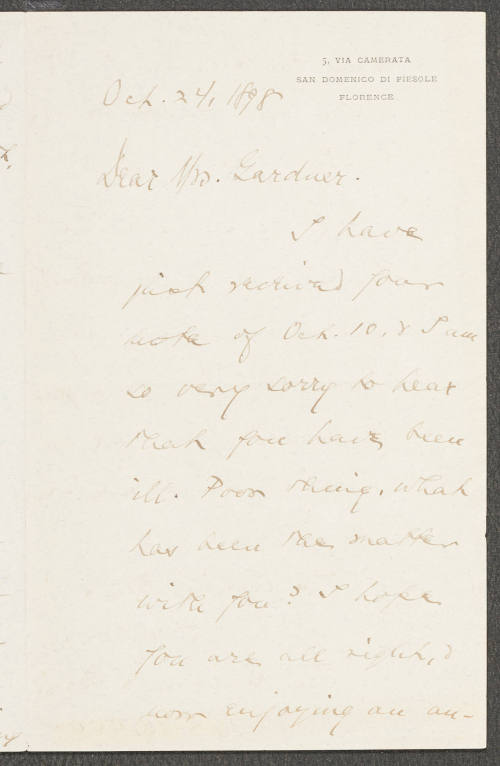 5, VIA CAMERATA
SAN DOMENICO DI FIESOLE
FLORENCE
Oct. 24, 1898
Dear Mrs. Gardner.
I have
just received your
note of Oct. 10, & I am
so very sorry to hear
that you have been
ill. Poor thing, what
has been the matter
with you? I hope
you are all right, &
now enjoying an au-